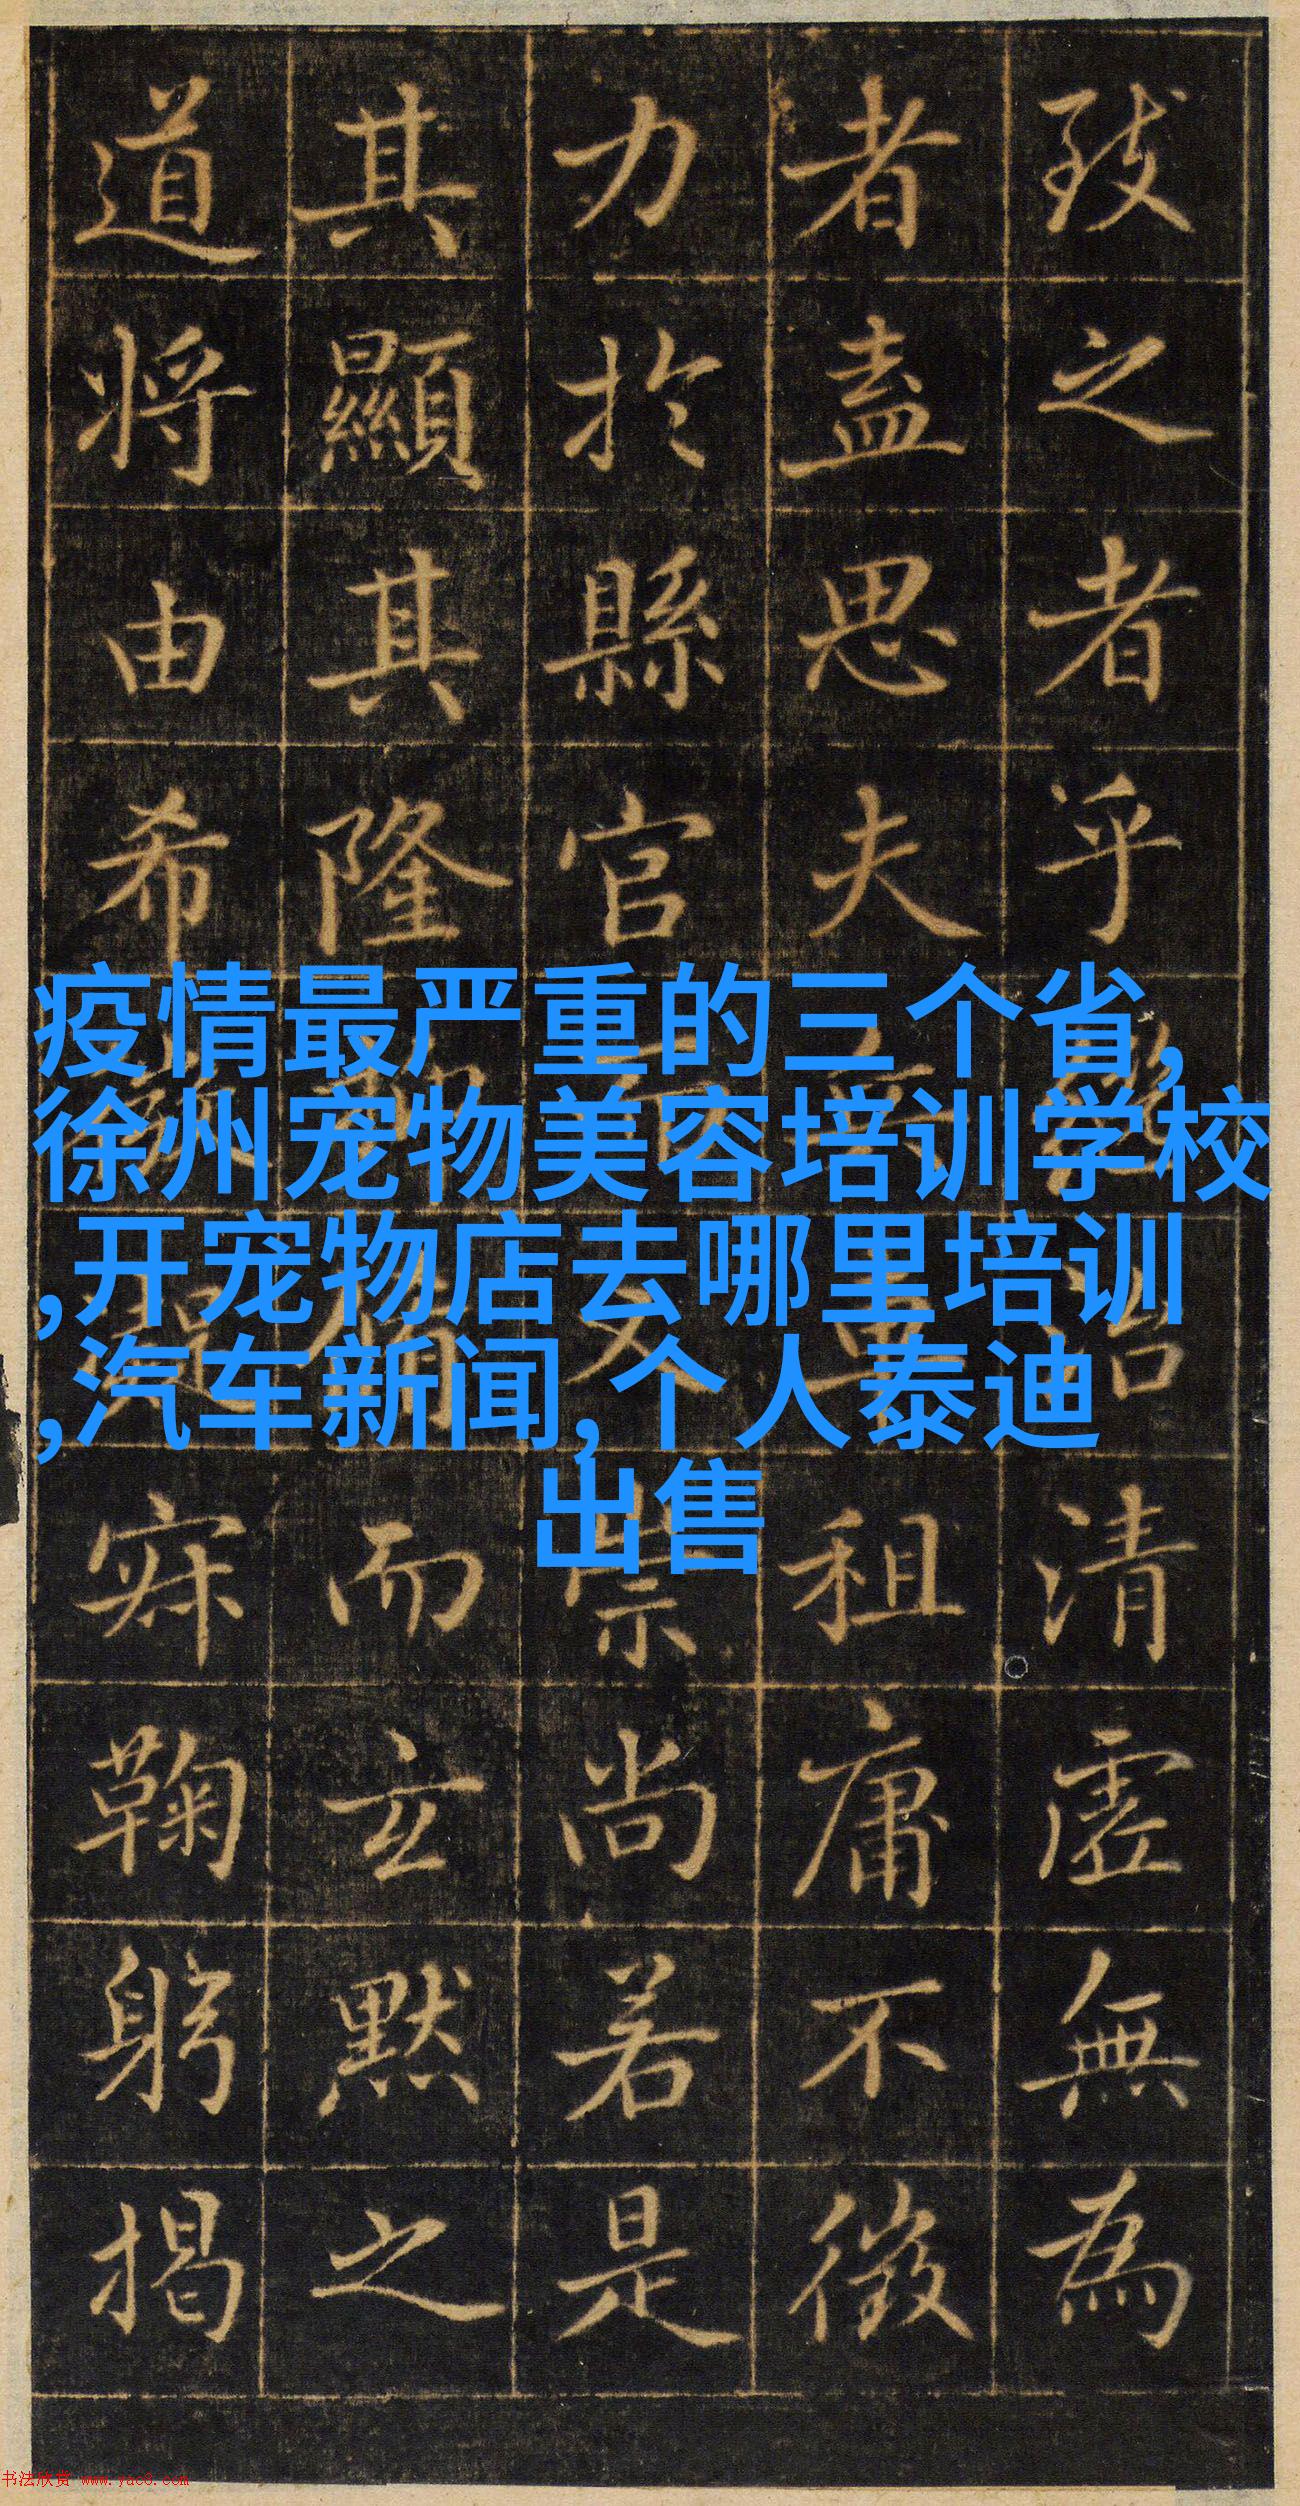 致之者乎清虛無為
者盡思夫租庸不徵
力於縣官崇尚若是
其顯其隆而玄默之
道将由希鞠躬揭
疫情最严重的三个省,
徐州宠物美容培训学校
,开宠物店去哪里培训
,汽车新闻,个人泰迪
出售
书法欣赏 www.yac8.com